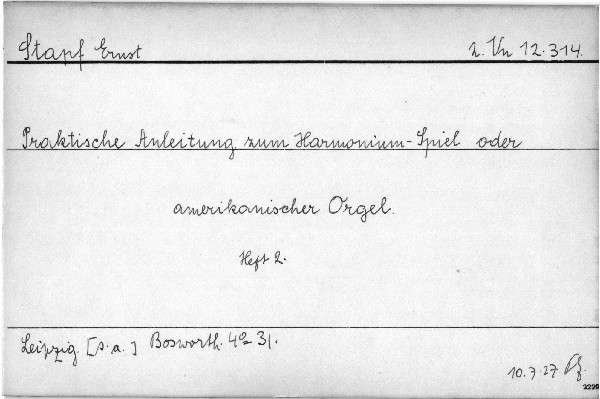 Stapf Ernst
Z. Vn 12.314.
Praktische Anleitung zum Harmonium-Spiel oder
amerikanischer Orgel.
Heft 2.
Leipzig. [s.a.] Bosworth. 4º 31.
10.7.27